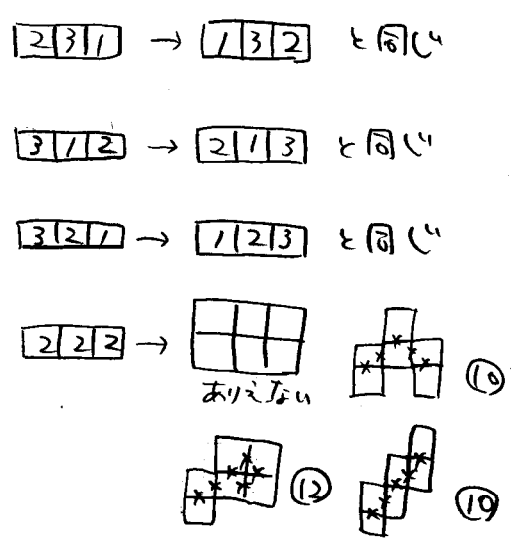 2 3 1 → 1 3 2 と同じ
3 1 2 → 2 1 3 と同じ
3 2 1 → 1 2 3 と同じ
2 2 2 →
ありえない
⑩
⑫
⑩